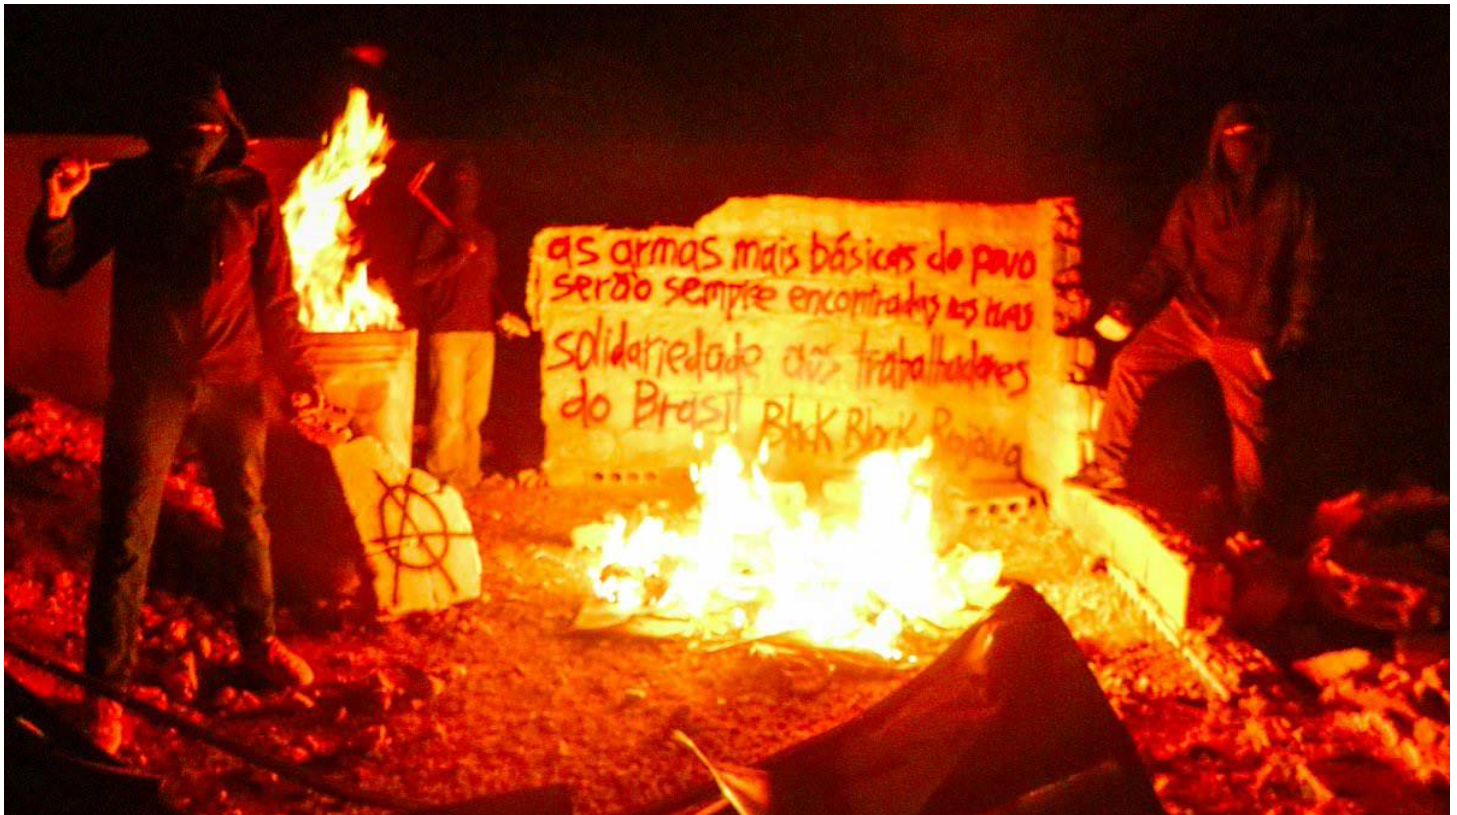 as armas mais básicas do povo
serão sempre encontradas nas ruas
solidariedade aos trabalhadores
do Brasil Black Block Rojava